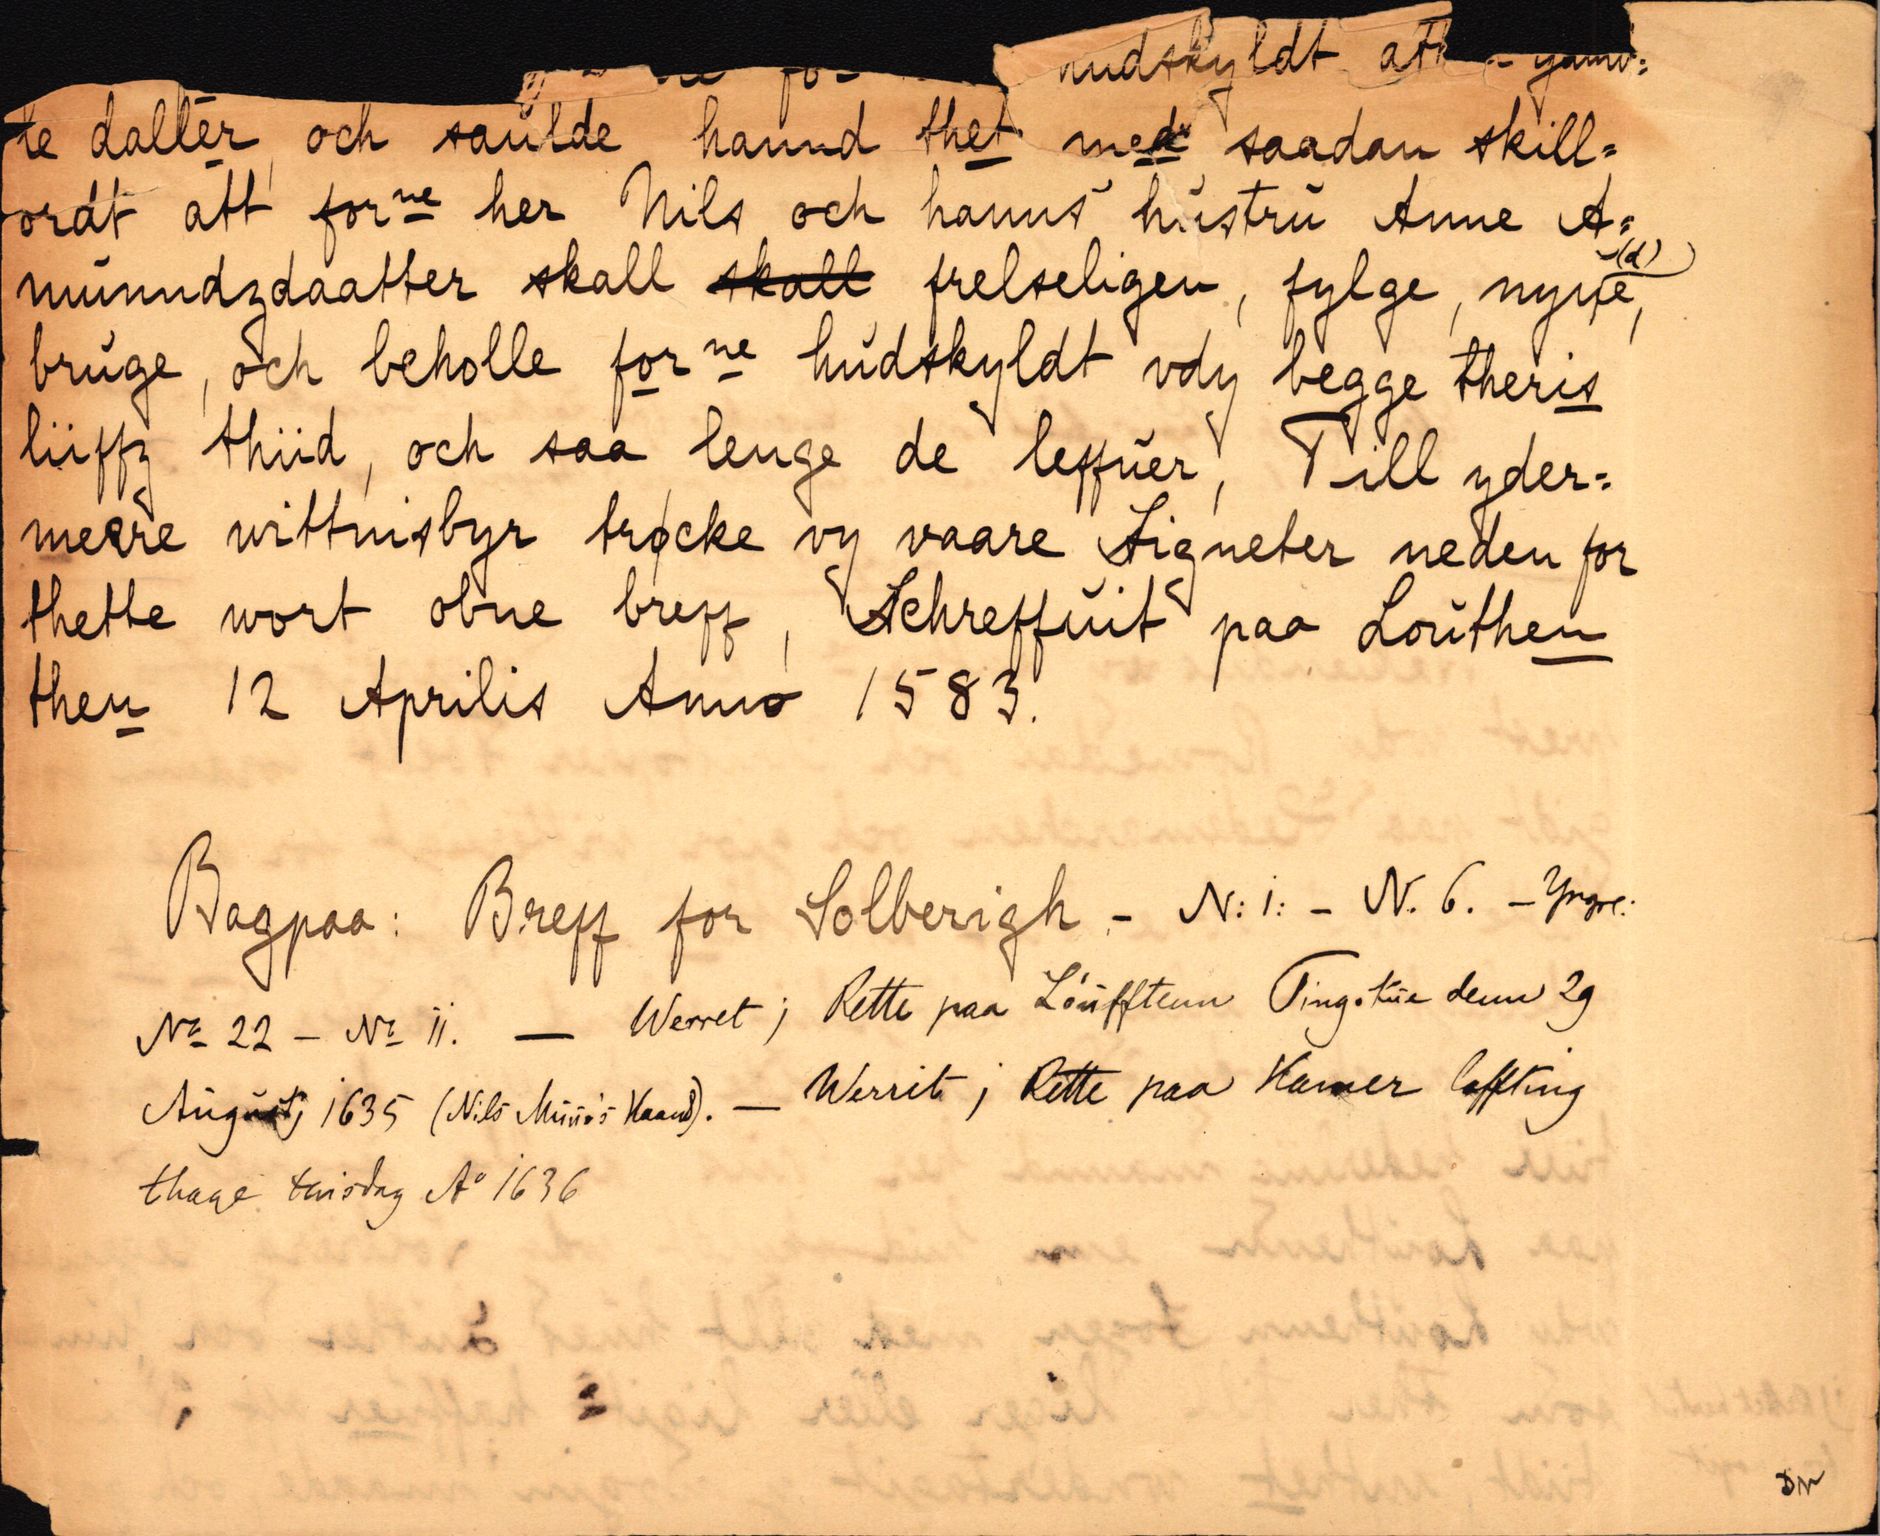 hudskyldt att
te daller, och saulde hannd thet med saadan skill=
ordt att forne her Nils och hanns hustru Anne A=
munndzdaatter skall skall frelseligen, fylge, nyde,
bruge, och beholle forne hudskyldt vdy begge theris
liiffz thiid, och saa lenge de leffuer, Till yder=
meere wittnisbyr trøcke vy vaare Signeter neden for
thette wort obne breff, Schreffuit paa Louthen
then 12 Aprilis Anno 1583.
Bagpaa: Breff for Solberigh - N: 1: - N. 6. - Yngre:
No 22 - No ii. — Werret j Rette paa Loufftenn Tingstue denn 29
Augustj 1635 (Nils Muus's Haand). — Werrit j Rette paa Hamer laffting
thage tiisdag Ao 1636
DN